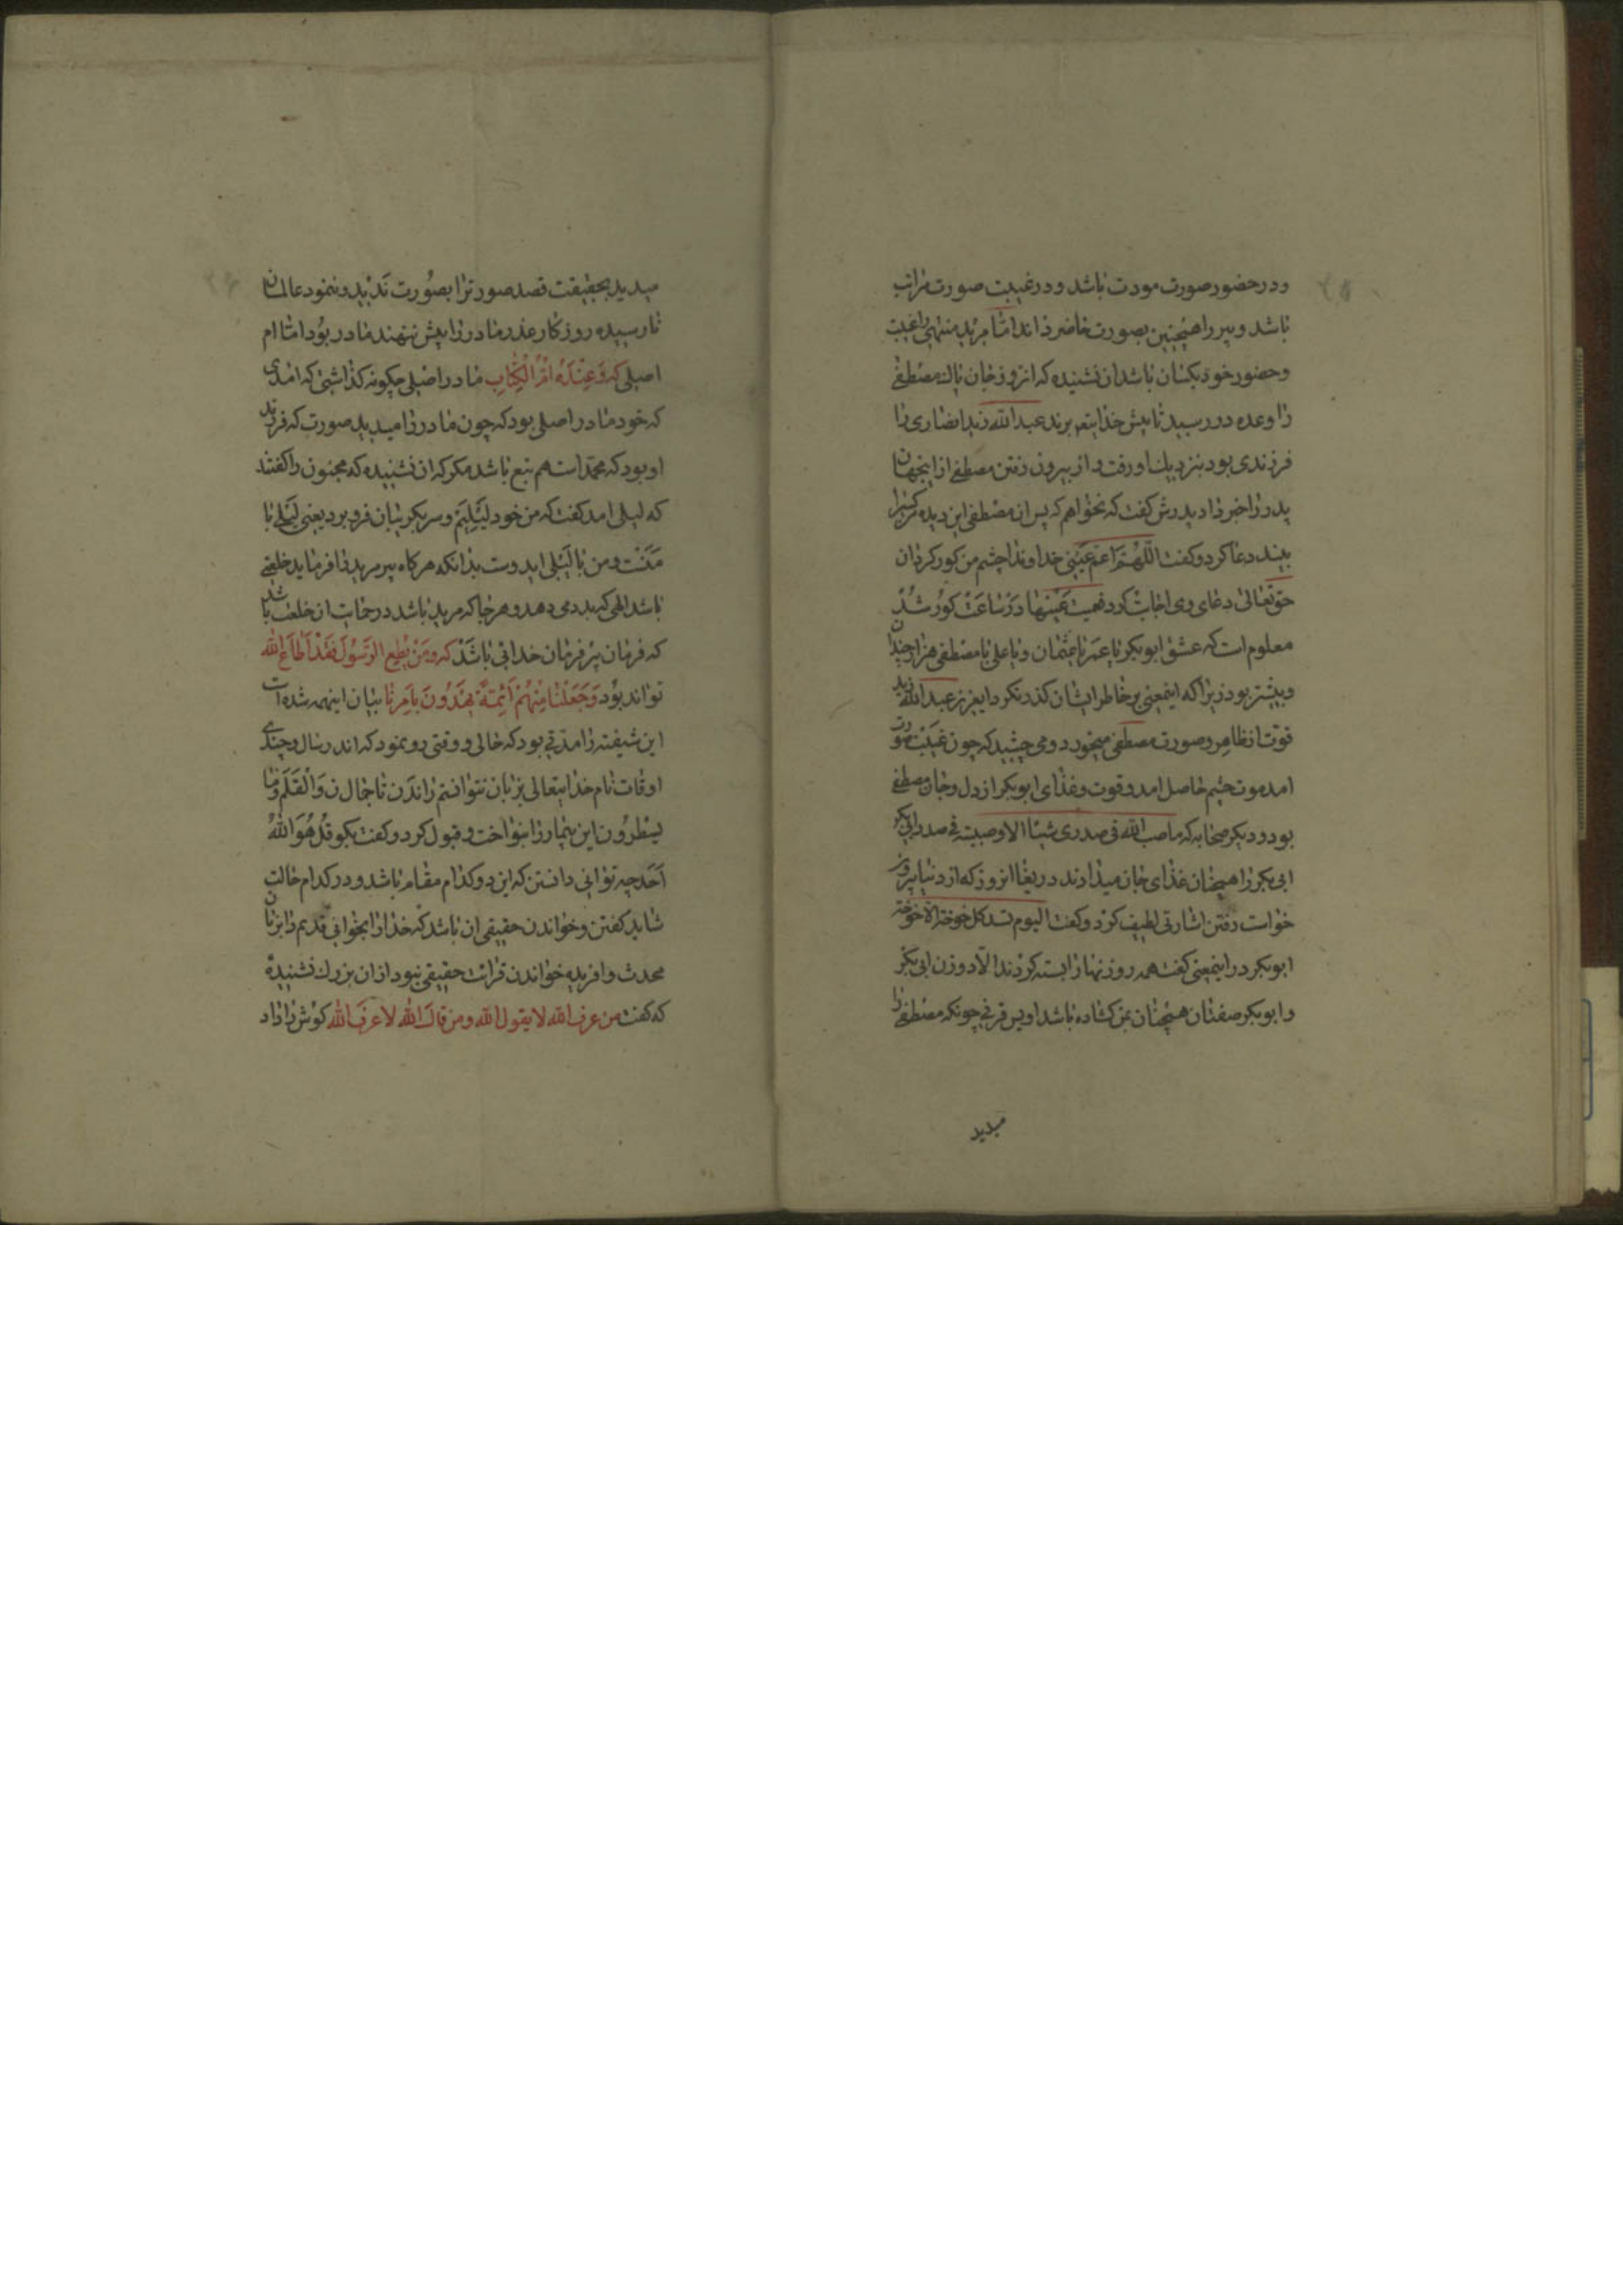 ودر حضور صورت مودت باشد ودر غیبت صورت مراتب
باشد وپیر را همچنین بصورت حاضر داند اما مرید منتهی را غیبت
وحضور خود یکسان باشد ان نشنیده که انروز جان پاک مصطفی
را وعده در رسید تا پیش خدایتعم برند عبدالله زید انصاری را
فرزندی بود بنزدیک او رفت و از بیرون رفتن مصطفی از اینجهان
پدر را خبر داد پدرش گفت که نخواهم که پس از مصطفی این دیده مر کسیرا
بیند دعا کرد وکفت اللّهُمَ اعمِ عَیْنِی خداوندا چشم من کور کردان
حق تعالی دعای وی اجابت کرد فعمیت عَیْنها در ساعَتْ کوُر شُدْ
معلوم است که عشق ابوبکر با عمر با عثمان وبا علی با مصطفی هزار چندان
وبیشتر بود زیرا که اینمعنی بر خاطر ایشان کذر نکرد ایعزیز عبدالله زید
قوت از ظاهر وصورت مصطفی میخورد ومی چشید که چون غَیْبت صورت
امد موت چشم حاصل امد وقوت وغذای ابوبکر از دل وجان مصطفی
بود ودیکر صحابه که ماصب الله فی صدری شیئا الا وصببته فی صدر ابی بکر
ابی بکر را همچنان غذای جان میدادند دریغا انروز که از دنیا بیرون
خواست رفتن اشارتی لطیف کرد وکفت الیوم تسد کل خوخة الا خوخة
ابوبکر در اینمعنی کفت همه روزنها را بسته کردند الا روزن ابی بکر
وابوبکر صفتان همچنان بمن کشاده باشد اویس قرنی چونکه مصطفی را
میدید
میدید بحقیقت قصد صور ترا بصوُرت نَدیْدِ وننمود عالمان
نارسیده روزکار عذر مادر را پیش ننهند مادر بوُد امّا ام
اصلی که وَعِنْدَهُ امُّ الْکِتابِ مادر اصلی چکونه کذاشتی که امدی
که خود مادر اصلی بود که چون مادر را میدید صورت که فرزند
او بود که محمّد است هم تبع باشد مکر که ان نشنیده که مجنون را کفتند
که لیلی امد کفت که من خود لَیْلِیَم وسر بکریبان فرو برد یعنی لَیْلی با
مَنَست ومن با لَیْلی ایدوست بدانکه هرکاه پیر مرید را فرماید خلعتی
باشد الهی که بدو می دهد وهرجا که مرید باشد در حمایت ان خلعت باشد
که فرمان پیر فرمان خدائی باشَد که ومَنْ یُطِعِ الرَّسُولَ فَقَدْ اَطاعَ الله
تواند بوُد وَجَعَلْنا مِنْهُمْ اَئِمَةً یَهْدُونَ بِاَمرِنا بیان اینهمه شده است
این شیفته را مدّتی بود که حالی ووقتی رو نمود که اندر سال وچندی
اوقات نام خدایتعالی بزبان نتوانستم راندَن تا جمال ن وَالْقَلَم وَما
یَسْطُرُون این بیمار را بنواخت وقبول کرد وکفت بکو قلُ هُوَ اللهُ
اَحَد چه توانی دانستن که این دو کدام مقام باشد ودر کدام حالت
شاید کفتن وخواندن حقیقی ان باشد که خدا را بخوانی قدیم را بزبان
محدث وافریده خواندن قرائت حقیقی نبود از ان بزرك نشنیدهٔ
که کفت من عرف الله لا یقول الله ومن قال الله لا عرف الله کوش را داد